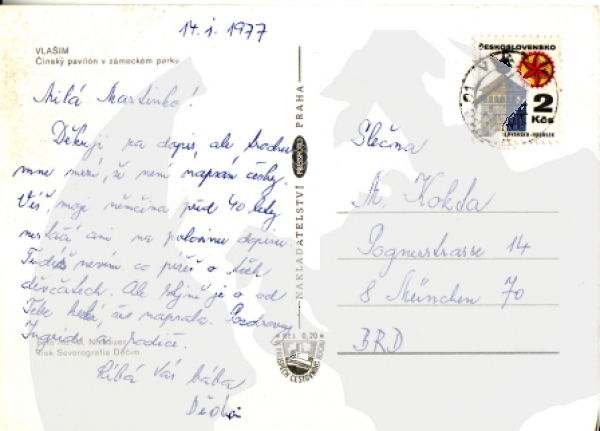 14. 1. 1977
VLAŠIM
Čínský pavilón v zámeckém parku
Milá Martinko!
Děkuji za dopis, ale trochu
mne mrzí, že není napsán česky.
Víš, moje němčina před 40 lety
nestačí ani na polovinu dopisu.
nevím co píšeš o těch
děvčatech. Ale je to od
Tebe hezké, žes napsala. Pozdravuj
Ingrid a rodiče.
Tisk Severografia Děčín
Líbá Vás bába
NAKLADATELSTVÍ PRESSFOTO PRAHA
KČS 0,20
ČESKOSLOVENSKO
2
Kčs
Slečna
M. Kokta
Pognerstrasse 14
8 München 70
BRD